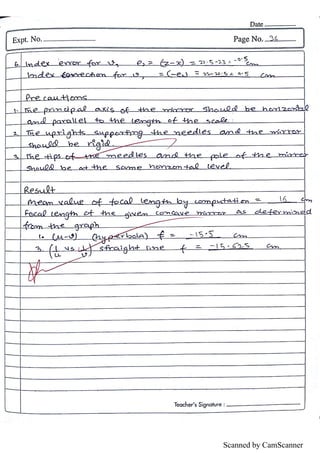 Date
Expt. No.
Page No. 26
6. Index error for v, e2 = (z-x) = 21.5-22 = -0.5 cm
Index correction for v, = (-e2) = 0.5 cm
Precautions
1. The principal axis of the mirror should be horizontal
and parallel to the length of the scale.
2. The uprights supporting the needles and the mirror
should be rigid.
3. The tips of the needles and the pole of the mirror
should be at the same horizontal level.
Result
Mean value of focal length by computation = 16 cm
Focal length of the given concave mirror as determined
from the graph
1. (u-v) (hyperbola) f = -15.5 cm
2. (1/u vs 1/v) straight line f = -15.625 cm
Teacher's Signature :
Scanned by CamScanner